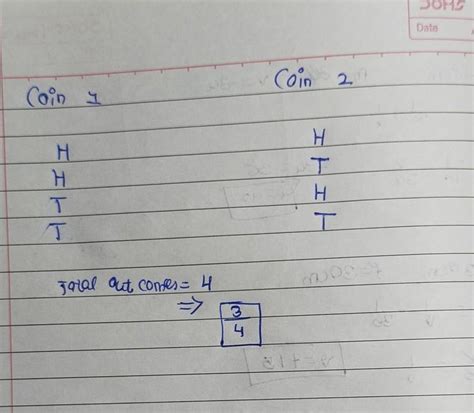 Date
Coin 1 Coin 2
H H
H T
T H
T T
Total Out comes = 4
⇒ 3/4